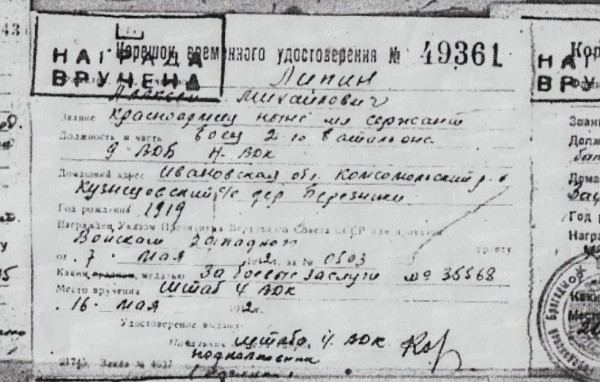 НАГРАДА
ВРУЧЕНА
Корешок временного удостоверения № 49361
Липин
Михайлович
Звание Красноармеец ныне мл сержант
Должность и часть боец 2 го батальона
9 ВОБ 4 ВОК
Домашний адрес Ивановская обл. Комсомольский р-н
Кузнецовский с/с дер Березники
Год рождения 1919
Награжден Указом Президиума Верховного Совета СССР или приказом
Войскам Западного
от 7 мая 1942 г. за № 0503
Каким медалью За боевые заслуги № 35568
Место вручения Штаб 4 ВОК
16 мая 1942 г.
Удостоверение выдано
Начальник штаба 4 ВОК
подполковник
21745. Заказ № 4637
НАГ
ВРУ
Кор
Звание
Долж
Дома
Год р
Награ